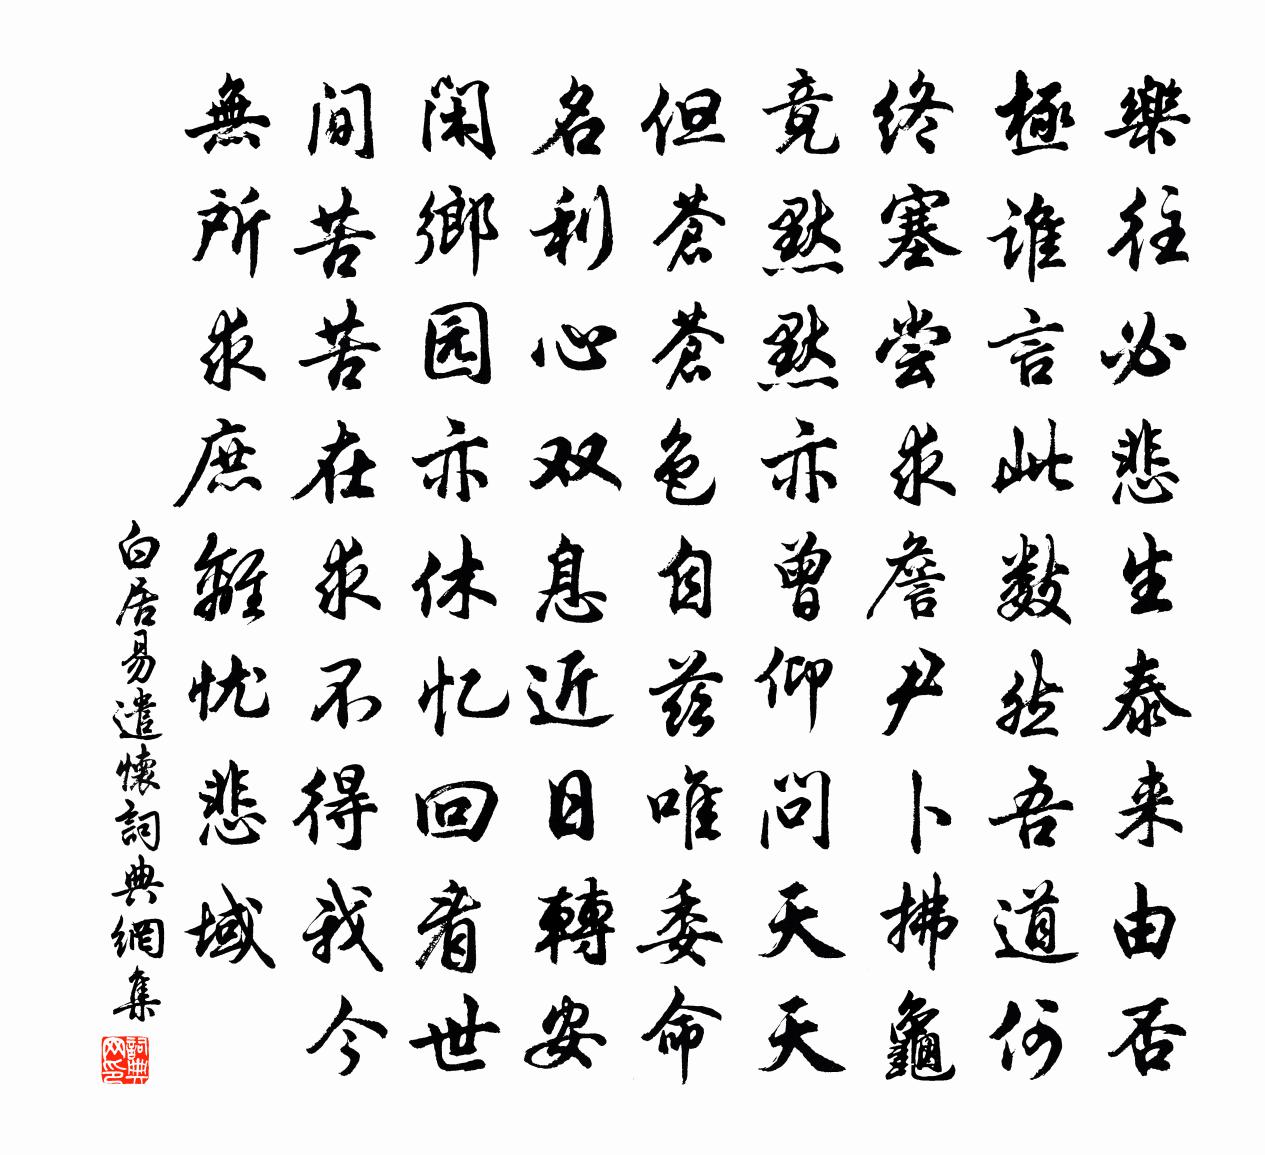 樂往必悲生泰来由否
極谁言此数然吾道何
终塞尝求詹尹卜拂龜
竟默默亦曾仰问天天
但蒼蒼色自兹唯委命
名利心双息近日轉安
闲鄉园亦休忆回看世
间苦苦在求不得我今
無所求庶離忧悲域
白居易遣懷詞典網集
詞典网印